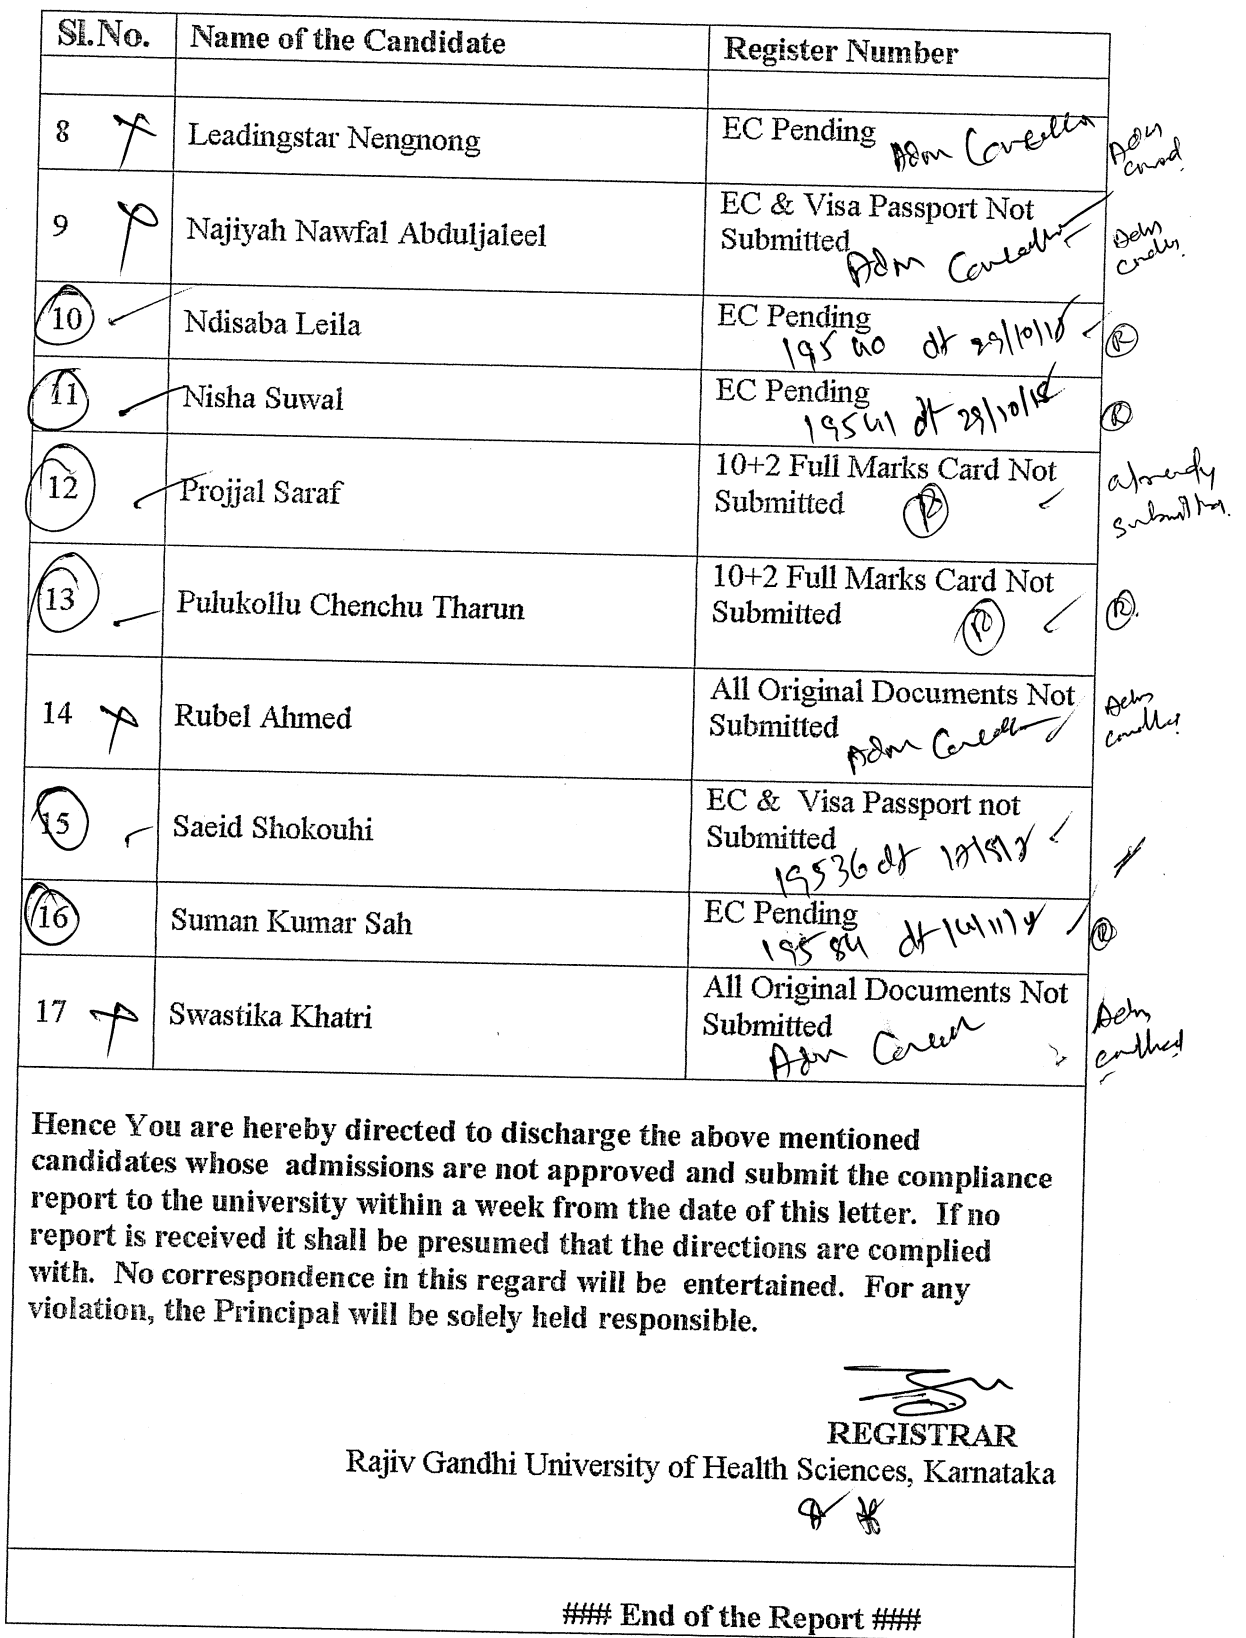 Sl.No. Name of the Candidate Register Number
8 Leadingstar Nengnong EC Pending
Adm
9 Najiyah Nawfal Abduljaleel EC & Visa Passport Not
Submitted
Adm
10 Ndisaba Leila EC Pending
19540 dt 29/10/18 R
11 Nisha Suwal EC Pending
19541 dt 29/10/18 R
12 Projjal Saraf 10+2 Full Marks Card Not
Submitted R
already
submitted
13 Pulukollu Chenchu Tharun 10+2 Full Marks Card Not
Submitted R R.
14 Rubel Ahmed All Original Documents Not
Submitted
Adm
15 Saeid Shokouhi EC & Visa Passport not
Submitted
19536 dt
16 Suman Kumar Sah EC Pending
19584 dt R
17 Swastika Khatri All Original Documents Not
Submitted
Adm
Hence You are hereby directed to discharge the above mentioned
candidates whose admissions are not approved and submit the compliance
report to the university within a week from the date of this letter. If no
report is received it shall be presumed that the directions are complied
with. No correspondence in this regard will be entertained. For any
violation, the Principal will be solely held responsible.
REGISTRAR
Rajiv Gandhi University of Health Sciences, Karnataka
### End of the Report ###